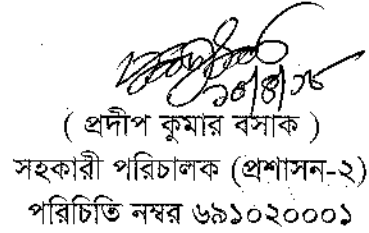 ( প্রদীপ কুমার বসাক )
সহকারী পরিচালক (প্রশাসন-২)
পরিচিতি নম্বর ৬৯১০২০০০১